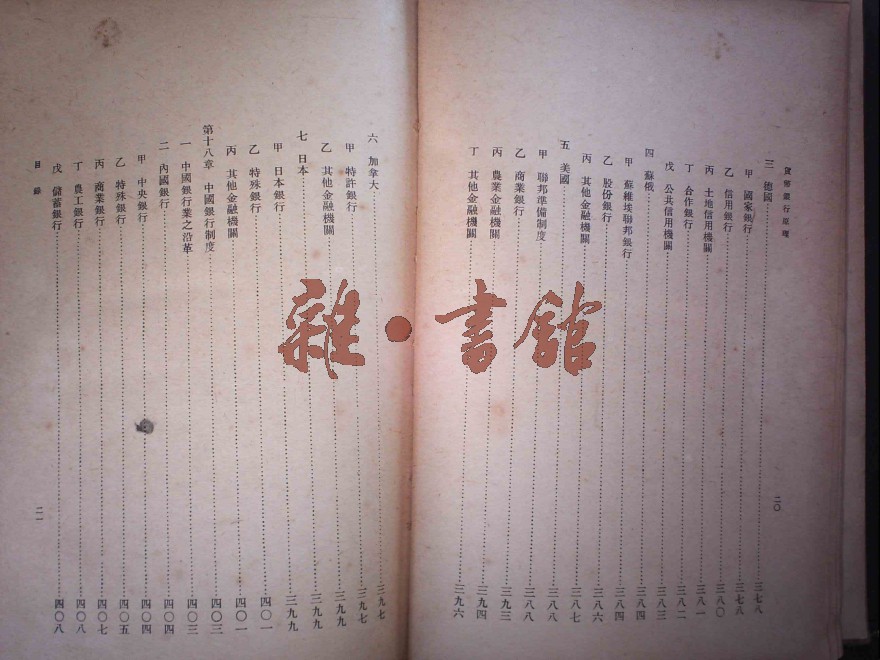 貨幣銀行原理
三 德國 三七八
甲 國家銀行 三七八
乙 信用銀行 三八〇
丙 土地信用機關 三八一
丁 合作銀行 三八二
戊 公共信用機關 三八三
四 蘇俄 三八四
甲 蘇維埃聯邦銀行 三八四
乙 股份銀行 三八六
丙 其他金融機關 三八七
五 美國 三八八
甲 聯邦準備制度 三八八
乙 商業銀行 三九三
丙 農業金融機關 三九四
丁 其他金融機關 三九六
二〇
六 加拿大 三九七
甲 特許銀行 三九七
乙 其他金融機關 三九九
七 日本 三九九
甲 日本銀行 三九九
乙 特殊銀行 四〇一
丙 其他金融機關 四〇一
第十八章 中國銀行制度 四〇三
一 中國銀行業之沿革 四〇三
二 內國銀行 四〇四
甲 中央銀行 四〇四
乙 特殊銀行 四〇五
丙 商業銀行 四〇七
丁 農工銀行 四〇八
戊 儲蓄銀行 四〇八
目錄
二一
雜·書館